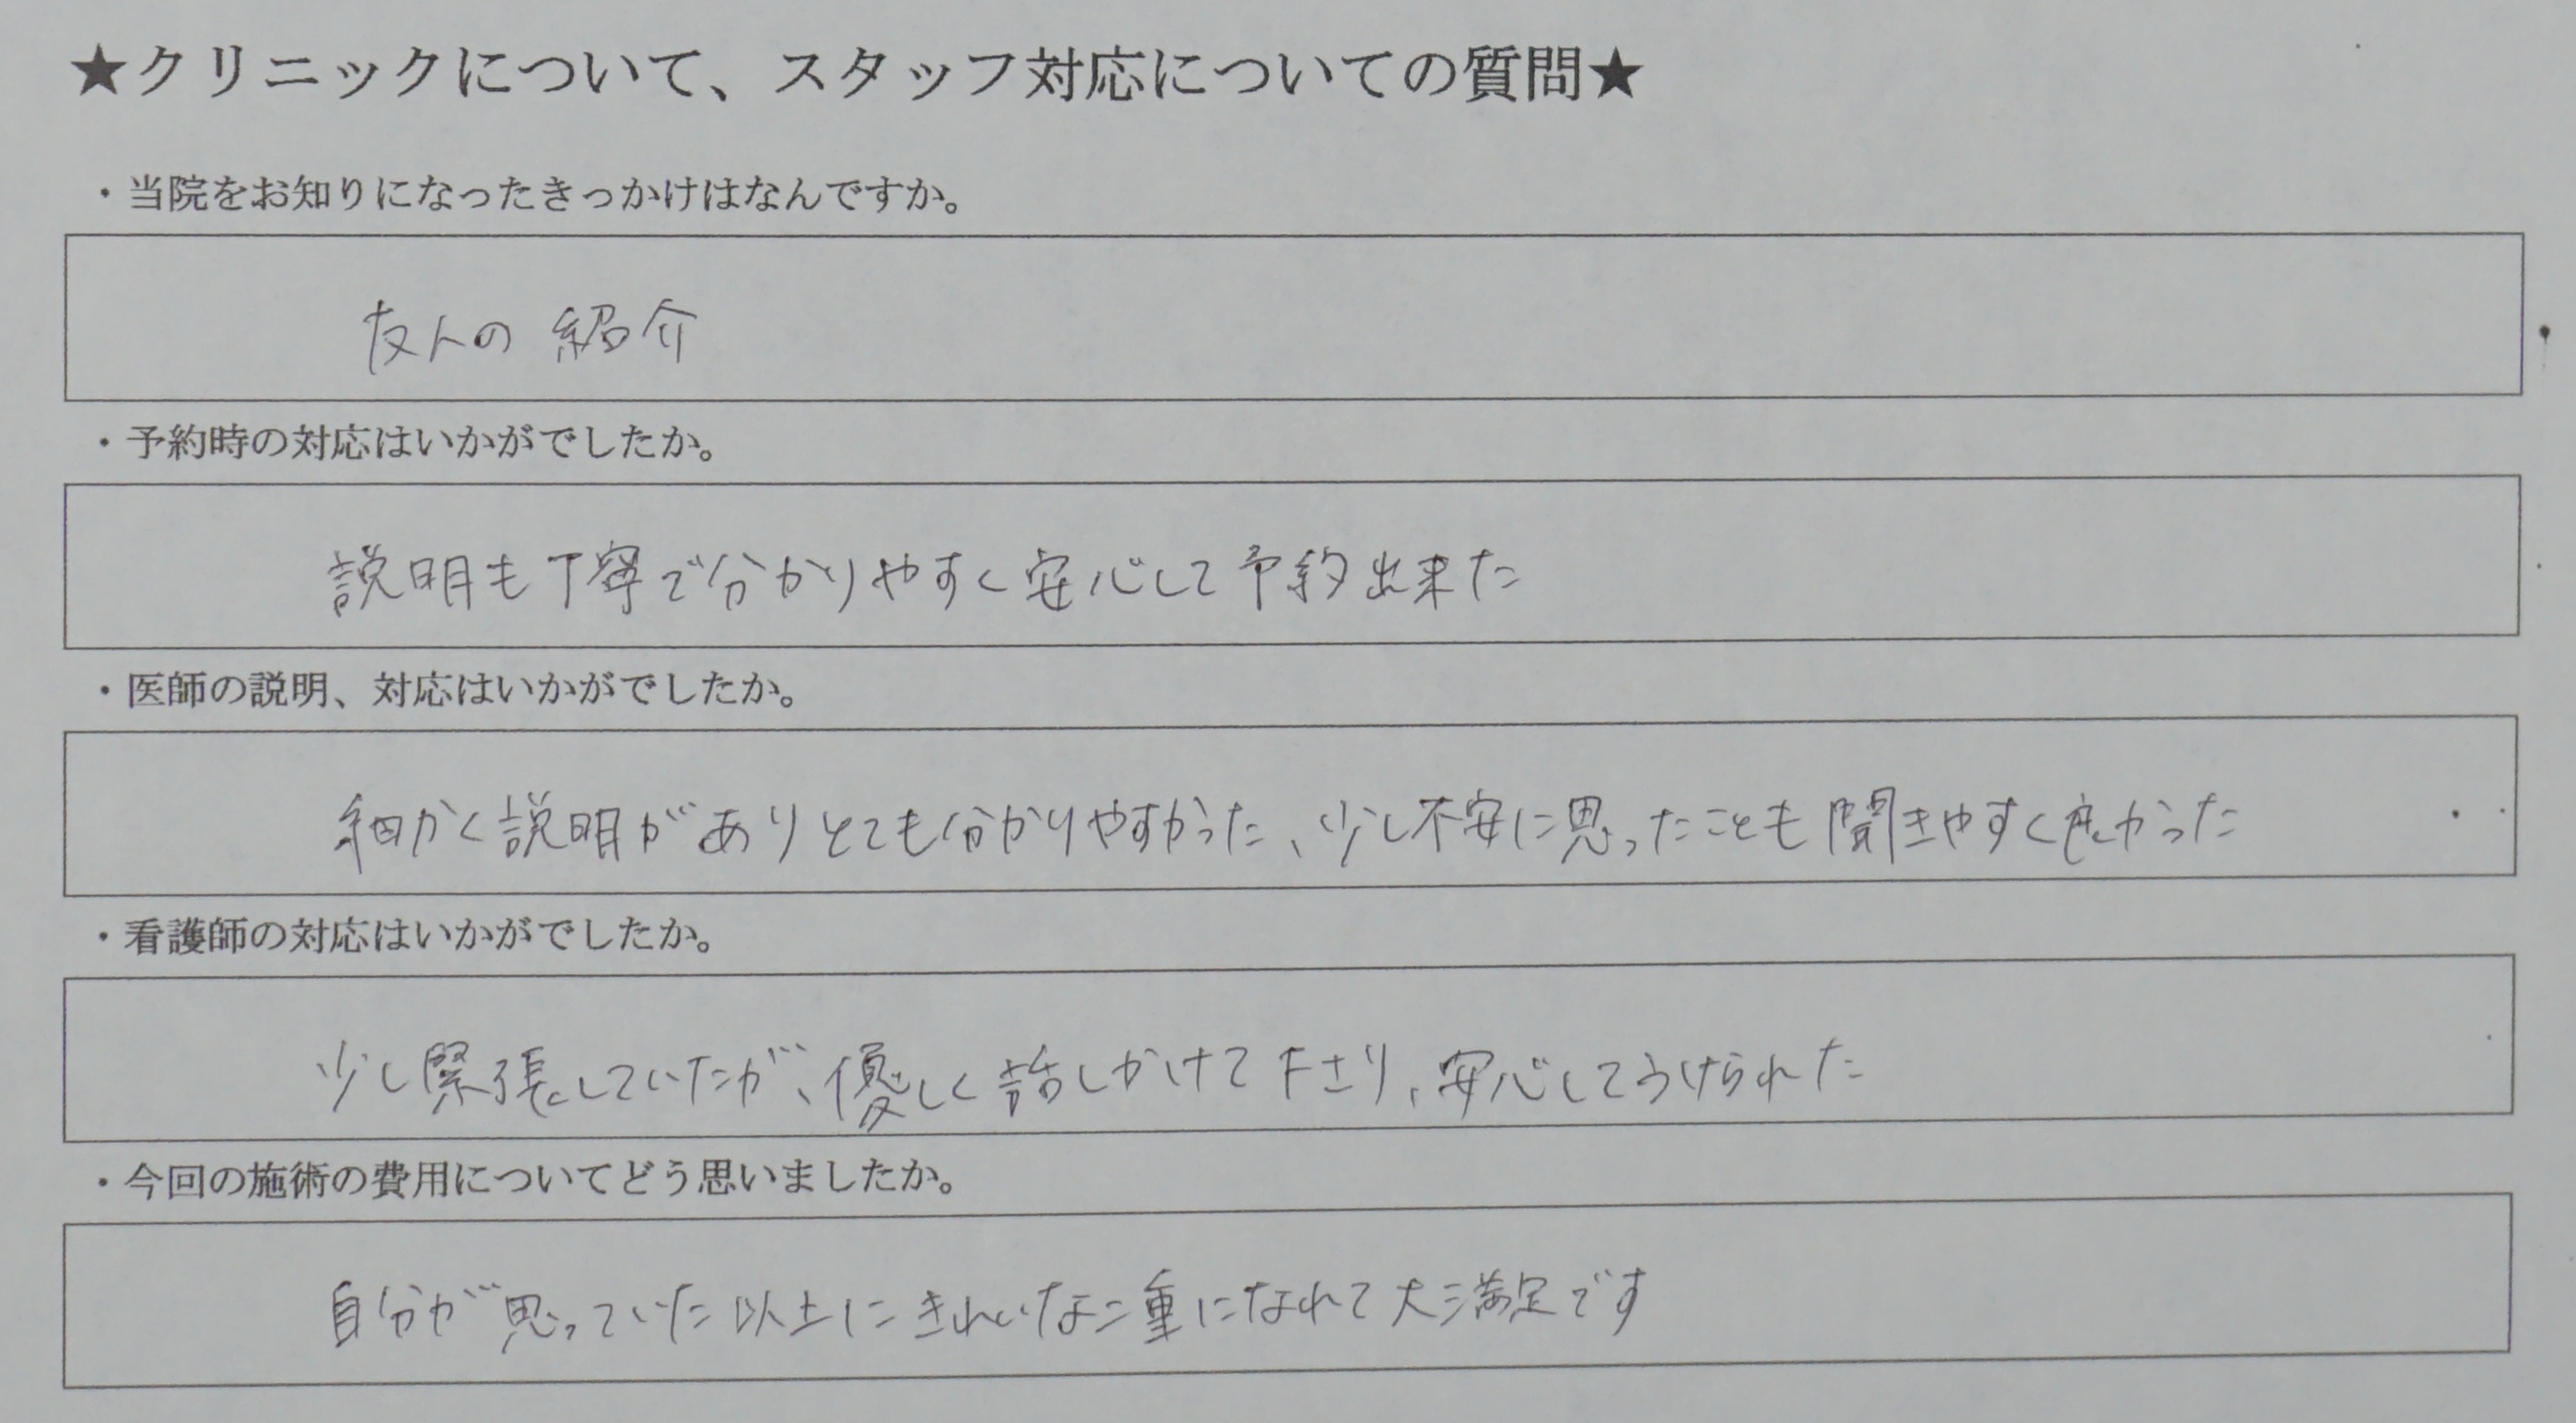 ★クリニックについて、スタッフ対応についての質問★
・当院をお知りになったきっかけはなんですか。
友人の紹介
・予約時の対応はいかがでしたか。
説明も丁寧で分かりやすく安心して予約出来た
・医師の説明、対応はいかがでしたか。
細かく説明がありとても分かりやすかった、少し不安に思ったことも聞きやすく良かった
・看護師の対応はいかがでしたか。
少し緊張していたが、優しく話しかけて下さり、安心してうけられた
・今回の施術の費用についてどう思いましたか。
自分が思っていた以上にきれいな二重になれて大満足です